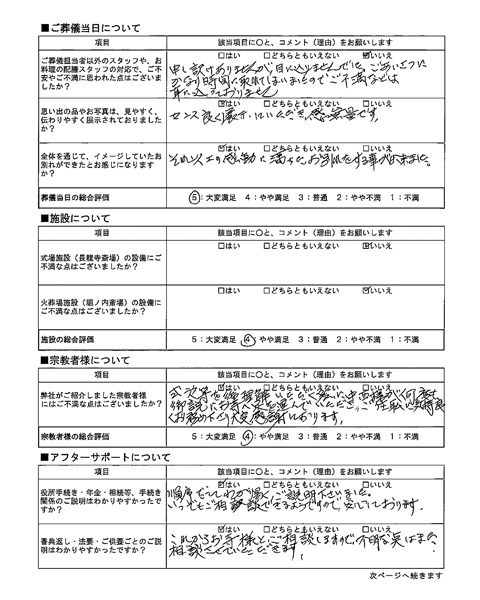 ■ご葬儀当日について
項目　該当項目に○と、コメント（理由）をお願いします
ご葬儀担当者以外のスタッフや、お
料理の配膳スタッフの対応で、ご不
安やご不満に思われた点はございま
したか？
□はい　□どちらともいえない　□いいえ
申し訳ありませんが、目に入りませんでした。ごあいさつに
かなり時間を取られてしまいましたのでご不満などは
耳に入っておりません
思い出の品やお写真は、見やすく、
伝わりやすく展示されておりました
か？
☑はい　□どちらともいえない　□いいえ
センス良く展示していただき感無量です。
全体を通じて、イメージしていたお
別れができたとお感じになります
か？
☑はい　□どちらともいえない　□いいえ
それ以上の感動に満ちたお葬式をする事が出来ました。
葬儀当日の総合評価　⑤：大変満足　4：やや満足　3：普通　2：やや不満　1：不満
■施設について
項目　該当項目に○と、コメント（理由）をお願いします
式場施設（長龍寺斎場）の設備にご
不満な点はございましたか？
□はい　□どちらともいえない　☑いいえ
火葬場施設（堀ノ内斎場）の設備に
ご不満な点はございましたか？
□はい　□どちらともいえない　☑いいえ
施設の総合評価　5：大変満足　④：やや満足　3：普通　2：やや不満　1：不満
■宗教者様について
項目　該当項目に○と、コメント（理由）をお願いします
弊社がご紹介しました宗教者様
にはご不満な点はございましたか？
□どちらともいえない　□いいえ
宗教者様の総合評価　5：大変満足　④：やや満足　3：普通　2：やや不満　1：不満
■アフターサポートについて
項目　該当項目に○と、コメント（理由）をお願いします
役所手続き・年金・相続等、手続き
関係のご説明はわかりやすかったで
すか？
☑はい　□どちらともいえない　□いいえ
順序だててわかり易くご説明下さいました。
いつでもご相談できるようですので、安心しております。
香典返し・法要・ご供養ごとのご説
明はわかりやすかったですか？
☑はい　□どちらともいえない　□いいえ
これからお寺様とご相談しますので不明な点はまた
相談させていただきます。
次ページへ続きます